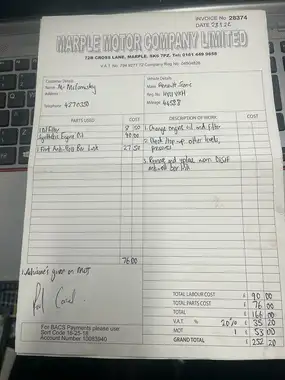 INVOICE No 28374
DATE
MARPLE MOTOR COMPANY LIMITED
72B CROSS LANE, MARPLE, SK6 7PZ, Tel: 0161 449 9688
V.A.T. No.
Company Reg No
CUSTOMER DETAILS
Name :- Mr
Address :-
Telephone :-
VEHICLE DETAILS
Make :- Renault
Reg. No :-
Mileage :-
PARTS USED £ C
1 Oil Filter 8 50
Synthetic Engine Oil 40 00
1 Front Anti-Roll Bar Link 27 50
76 00
DESCRIPTION OF WORK
1. Change engine oil and filter
2. Check, top-up other levels, pressures
3. Remove and replace worn
anti-roll bar link
Advisories given on MOT
Paid
TOTAL LABOUR COST £ 90 00
TOTAL PARTS COST £ 76 00
TOTAL £ 166 00
V.A.T. % 20% £ 33 20
MOT 1 £ 53 00
GRAND TOTAL £ 252 20
For BACS Payments please use
Sort Code
Account Number